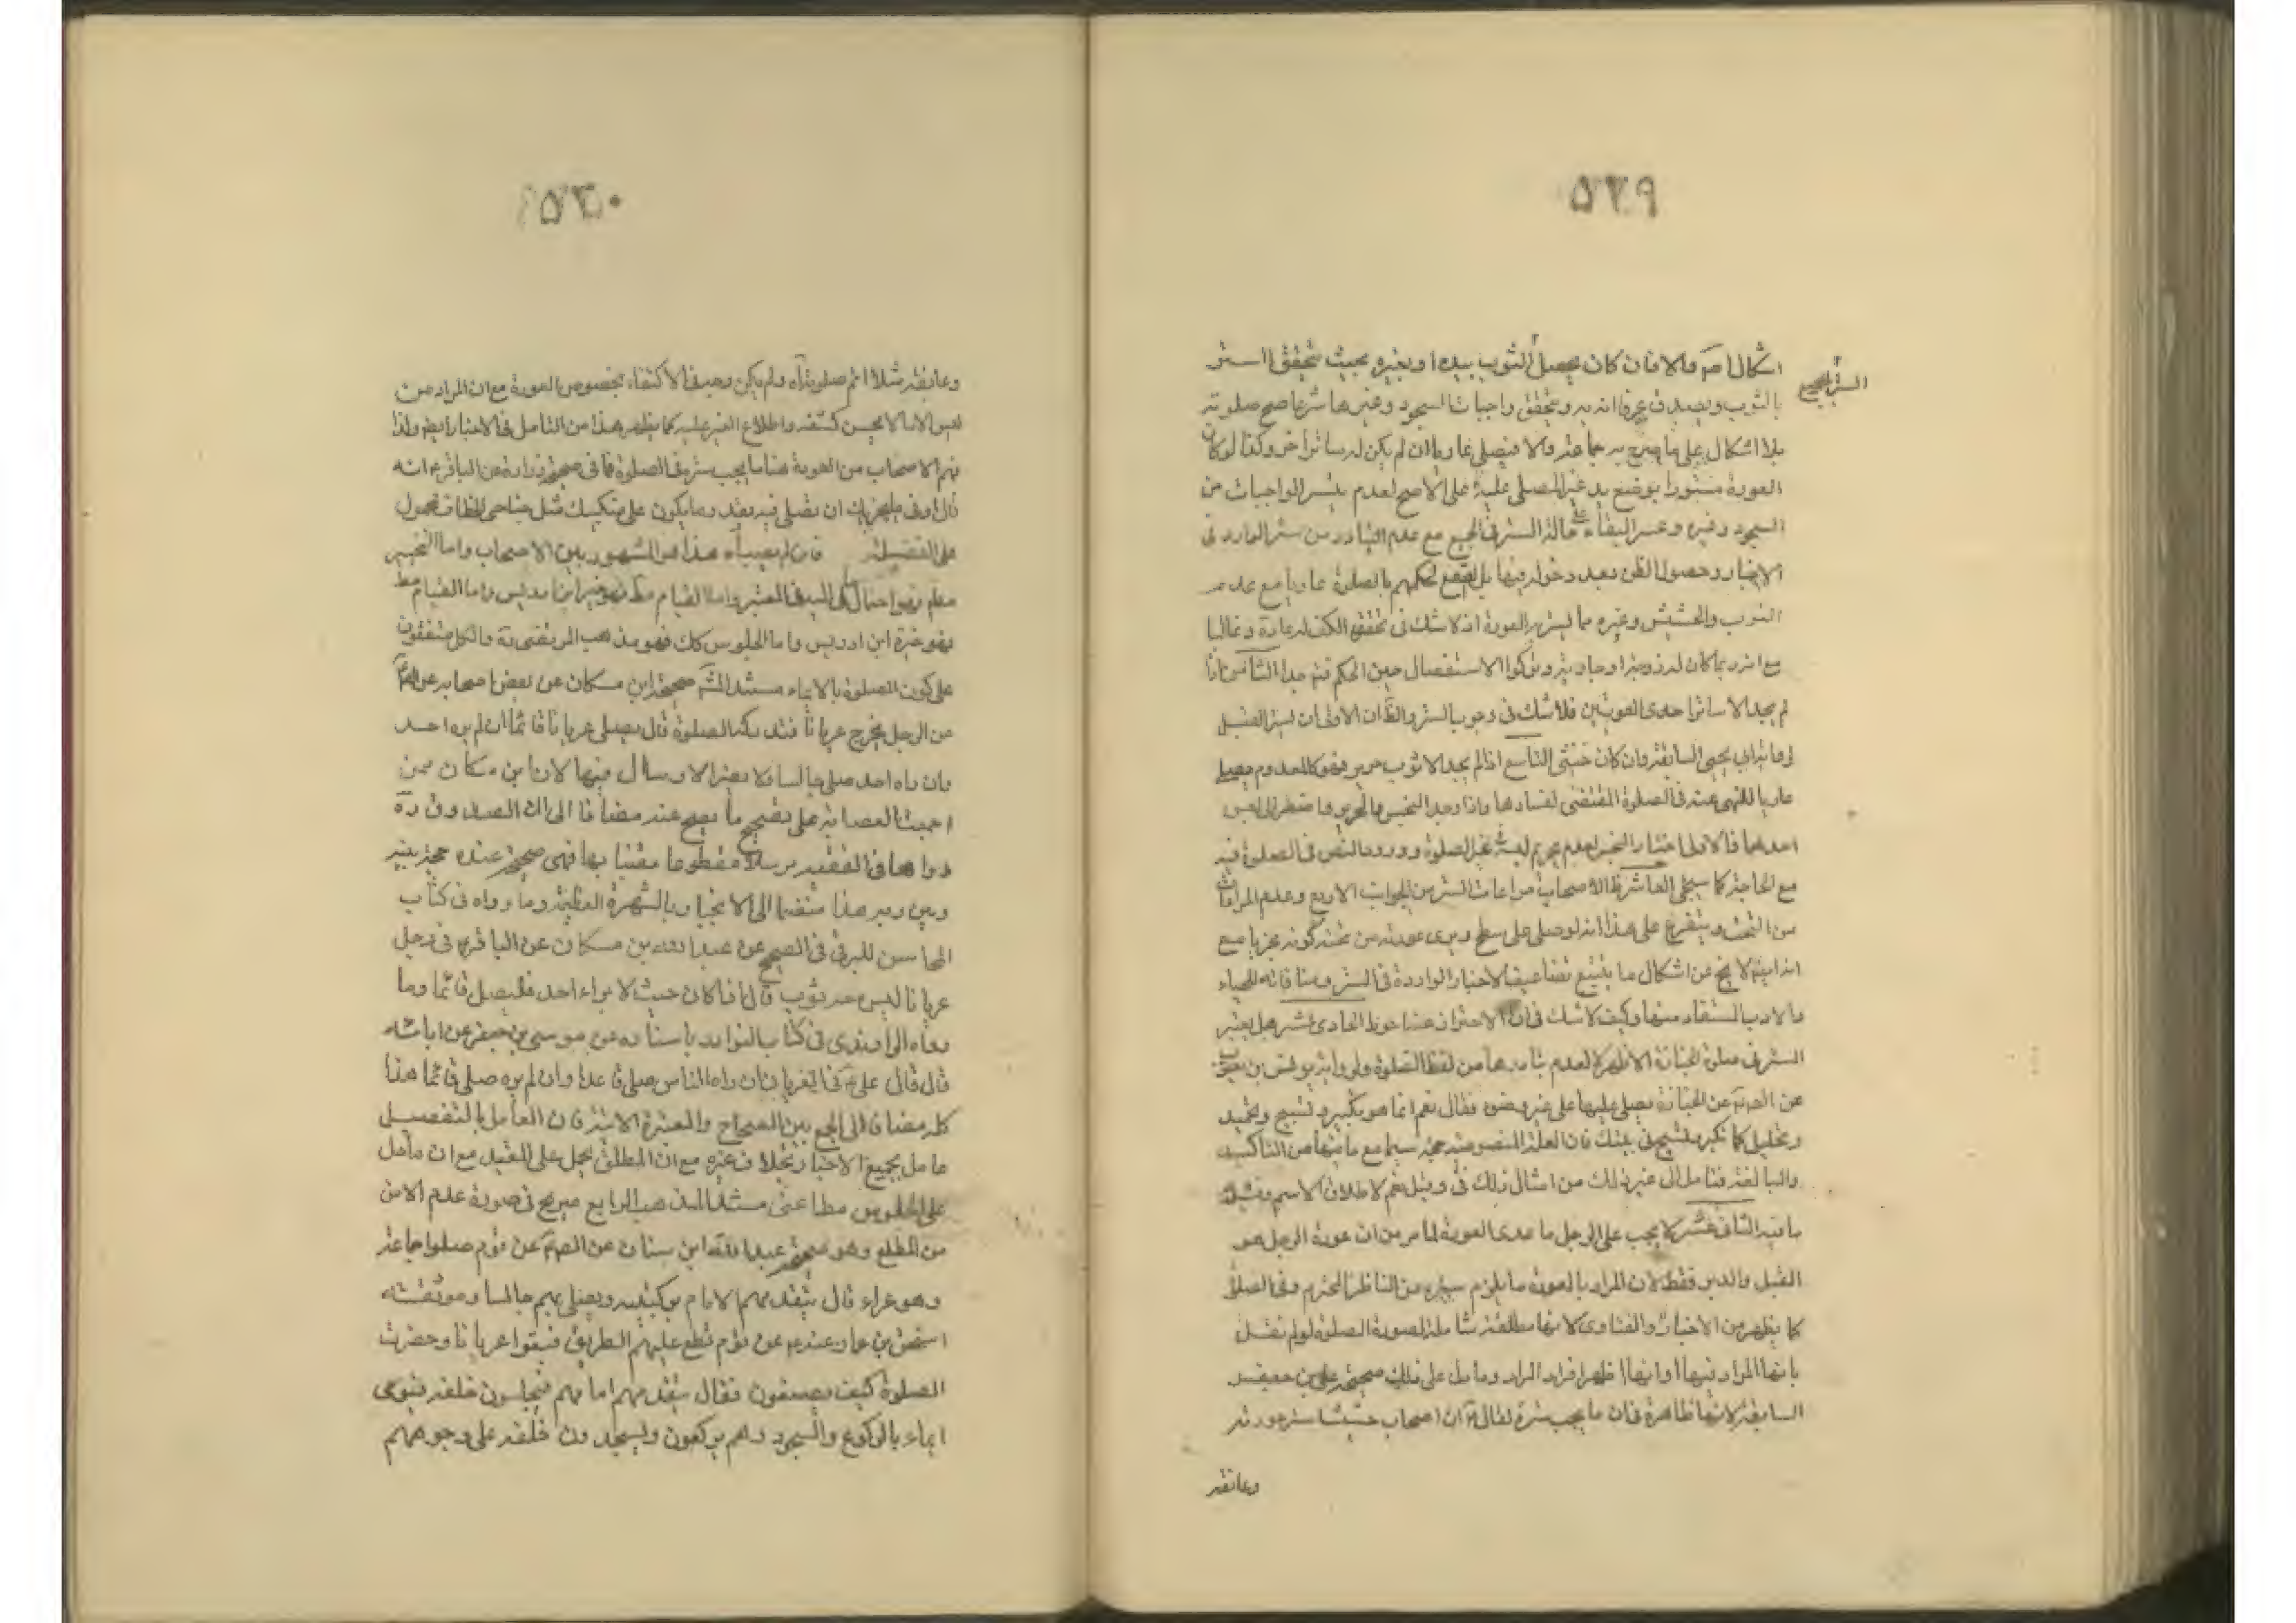 ٥٢٩
الستر الصحيح
اشكال امر والا فان كان يحصل الثوب بيده او بغيره بحيث يتحقق الستر
بالثوب ويصدق عرفا انه به ويتحقق واجبات السجود وغيرها شرعا صح صلوته
بلا اشكال على ما صرح به جماعة والا فيصلي عاريا ان لم يكن له ساتر اخر وكذا لو كان
العورة مستورا بوضع يد غير المصلي عليه على الاصح لعدم تيسر الواجبات من
السجود وغيره وعسر البقاء على حالة الستر في الجميع مع عدم التبادر من ستر الوارد في
الاخبار وحصول الظن بعد دخوله فيها بل القطع لحكمهم بالصلوة عاريا مع عدم
الثوب والحشيش وغيره مما يستر به العورة اذ لا شك في تحقق الكف له عادة وغالبا
مع انه ربما كان له زوجة او جارية وتركوا الاستفصال حين الحكم فتم جدا الثامن اذا
لم يجد الا ساتر احدى العورتين فلا شك في وجوب الستر والظ ان الاولى ان يستر القبل
لرواية ابي يحيى السابقة وان كان خنثى التاسع اذا لم يجد الا ثوب حرير فهو كالمعدوم يصلي
عاريا للنهي عنه في الصلوة المقتضي لفسادها واذا وجد النجس والحرير واضطر الى لبس
احدهما فالاولى اختيار النجس لعدم تحريم لبسه في غير الصلوة وورود النص في الصلوة فيه
مع الحاجة كما سيجئ العاشر ظ الاصحاب مراعات الستر من الجوانب الاربع وعدم المراعات
من التحت ويتفرع على هذا انه لو صلى على سطح ويرى عورته من تحته كونه مجزيا مع
انه ايضا لا يخ عن اشكال ما يتتبع تضاعيف الاخبار الواردة في الستر ومنافاته للحياء
والادب المستفاد منها وكيف لا شك في ان الاحتراز عنها احوط الحادي عشر هل يعتبر
الستر في صلوة الجنازة الاظهر لا لعدم تبادرها من لفظ الصلوة ولرواية يونس بن يعقوب
عن الصم عن الجنازة يصلى عليها على غير وضوء فقال نعم انما هو تكبير وتسبيح وتحميد
وتهليل كما تكبر وتسبح في بيتك فان العلة المنصوصة حجة سيما مع ما فيها من التاكيد
والمبالغة فتامل الى غير ذلك من امثال ذلك في وقيل نعم لاطلاق الاسم وفيه
ما فيه الثاني عشر لا يجب على الرجل ما عدى العورة لما مر من ان عورة الرجل هو
القبل والدبر فقط لان المراد بالعورة ما يلزم ستره من الناظر المحترم وفي الصلوة
كما يظهر من الاخبار والفتاوى لانها مطلقة شاملة لصورة الصلوة لو لم نقل
بانها المراد فيها او انها اظهر افراد المراد وما دل على ذلك صحيحة علي بن جعفر
السابقة لانها ظاهرة فان ما يجب ستره لقال ان اصاب حشيشا ستر عورته
وعانقه
٥٣٠
وعانقه مثلا اتم صلوته آه ولم يكن وجه في الاكتفاء بخصوص العورة مع ان المراد من
ليس الا ما لا يحسن كشفه واطلاع الغير عليه كما يظهر هذا من التامل في الاخبار ايضا ولذا
فهم الاصحاب من العورة هنا ما يجب ستره في الصلوة فما في صحيحة زرارة عن الباقر ع انه
قال ادنى ما يجزيك ان تصلي فيه بقدر ما يكون على منكبيك مثل جناحي الخطاف محمول
على الفضيلة فان لم يصبها آه هذا هو المشهور بين الاصحاب واما التخيير
مطلقا فهو احتمال مال اليه في المعتبر واما القيام مط فهو خيرة ابن ادريس واما القيام مط
فهو خيرة ابن ادريس واما الجلوس كك فهو مذهب المرتضى ره والكل متفقون
على كون الصلوة بالايماء مستند المشهور صحيحة ابن مسكان عن بعض اصحابه عن الصم
عن الرجل يخرج عريانا فتدركه الصلوة قال يصلي عريانا قائما ان لم يره احد
وان راه احد صلى جالسا فلا يضر الارسال فيها لان ابن مسكان ممن
اجمعت العصابة على تصحيح ما يصح عنه مضافا الى ان الصدوق ره
رواها في الفقيه مرسلا مقطوعا مفتيا بها فهي صحيحة عنده حجة بينه
وبين ربه هذا منضما الى الانجبار بالشهرة العظيمة وما رواه في كتاب
المحاسن للبرقي في الصحيح عن عبد الله بن مسكان عن الباقر ع في رجل
عريانا ليس معه ثوب قال اذا كان حيث لا يراه احد فليصل قائما وما
رواه الراوندي في كتاب النوادر باسناده عن موسى بن جعفر عن ابائه
قال قال علي ع في العريان ان راه الناس صلى قاعدا وان لم يره صلى قائما هذا
كله مضافا الى الجمع بين الصحاح والمعتبرة الاخر فان العامل بالتفصيل
عامل بجميع الاخبار بخلاف غيره مع ان المطلق يحمل على المقيد مع ان ما دل
على الجلوس مطا عنى مستند المذهب الرابع صريح في صورة عدم الامن
من المطلع وهو صحيحة عبد الله ابن سنان عن الصم عن قوم صلوا جماعة
وهو عراة قال يتقدمهم الامام بركبتيه ويصلي بهم جالسا وموثقة
اسحق بن عمار عنه ع عن قوم قطع عليهم الطريق فبقوا عريانا وحضرت
الصلوة كيف يصنعون فقال يتقدمهم امامهم فيجلسون خلفه فيومي
ايماء بالركوع والسجود وهم يركعون ويسجدون خلفه على وجوههم